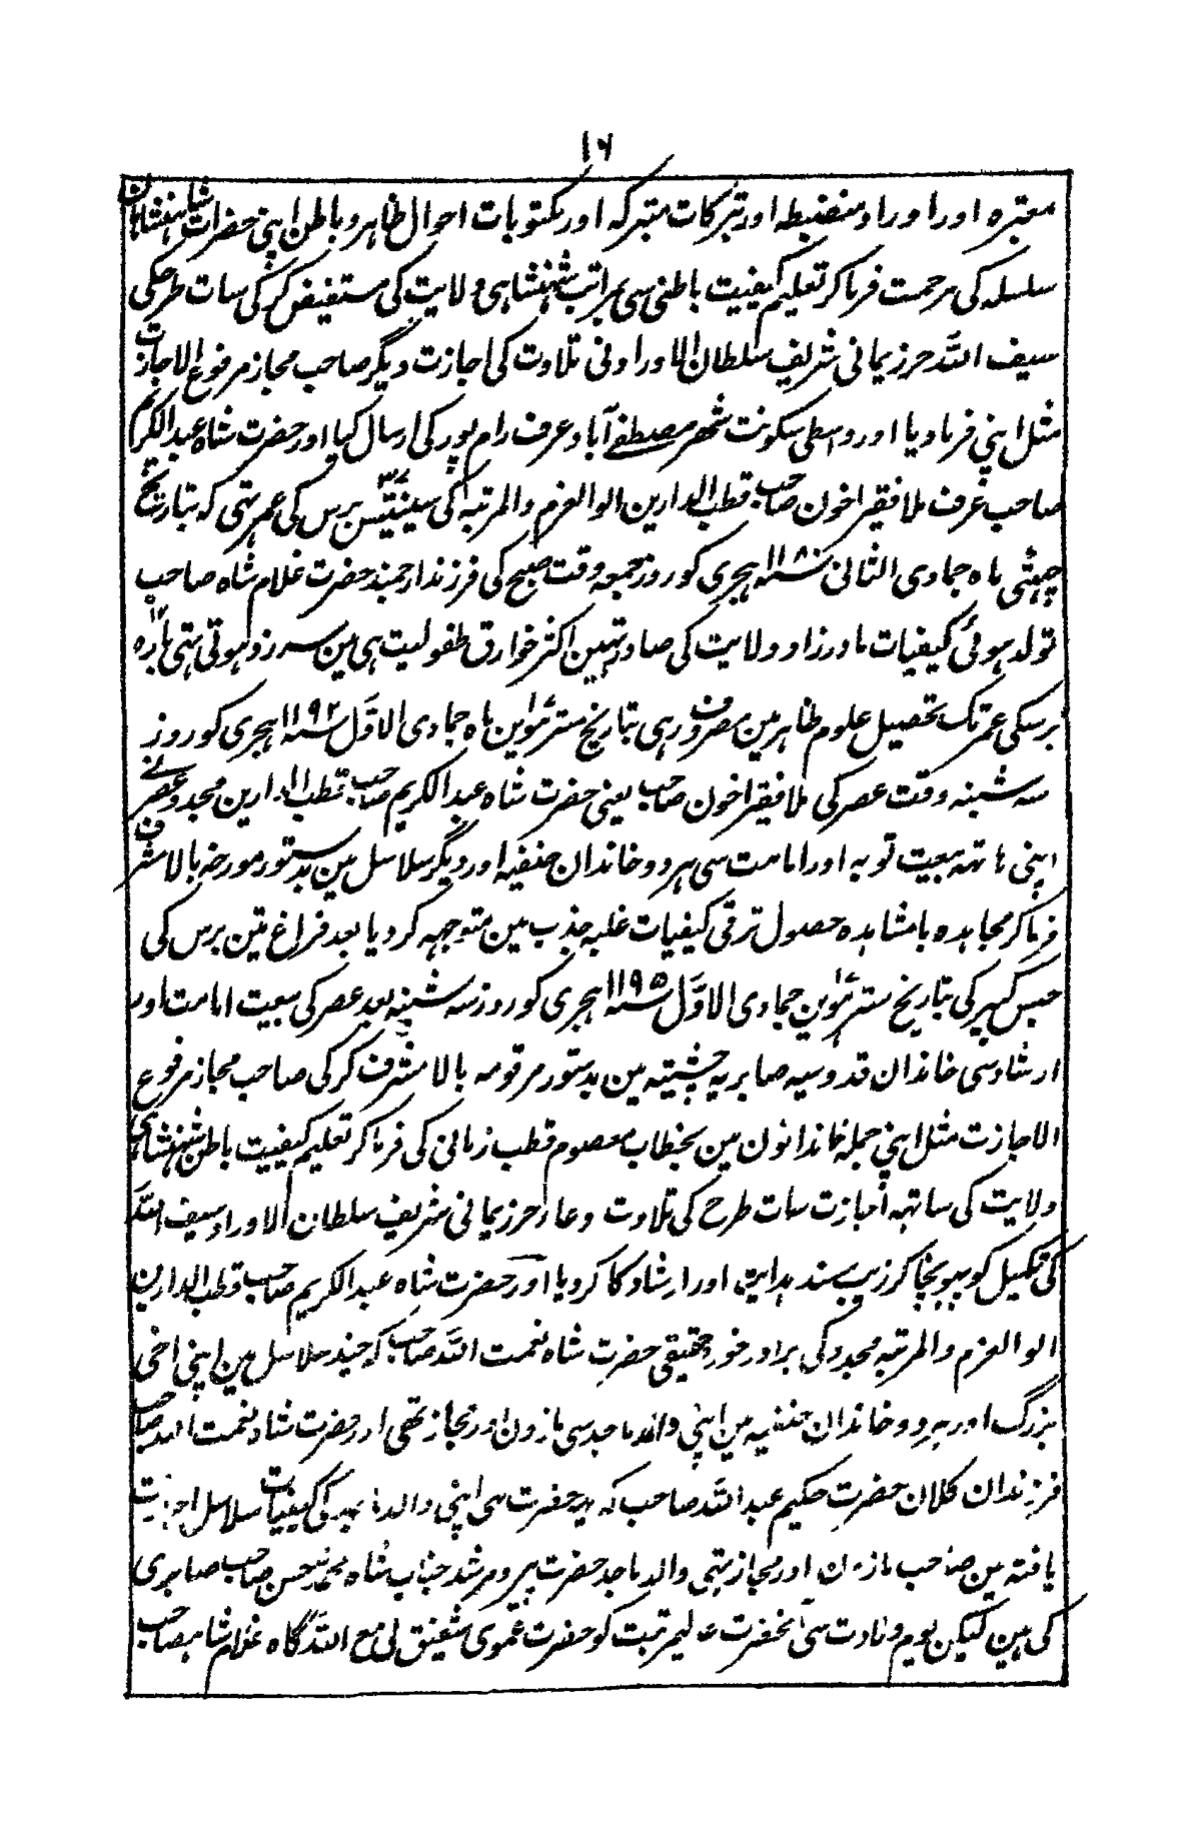 ۱۶
معتبرہ اور اوراد منضبطہ اور تبرکات متبرکہ اور مکتوبات احوال ظاہر و باطن اپنی حضرات شاہنشاہان
سلسلہ کی مرحمت فرما کر تعلیم کیفیت باطنی سی بمراتب شہنشاہی ولایت کی مستفیض کر کی سات طرحکی
سیف اللہ حرز یمانی شریف سلطان الاوراد کی تلاوت کی اجازت دیگر صاحب مجاز مرفوع الاجازت
مثل اپنی فرما دیا اور واسطی سکونت شہر مصطفے آباد عرف رام پور کی ارسال کیا اور حضرت شاہ عبدالکریم
صاحب عرف ملا فقیر اخون صاحب قطب الدارین الوالعزم والمرتبہ کی سینتیس ۳۷ برس کی عمر تہی کہ بتاریخ
چہٹی ماہ جمادی الثانی سنہ ۱۱۸۰ ہجری کو روز جمعہ وقت صبح کی فرزند ارجمند حضرت غلام شاہ صاحب
تولد ہوئی کیفیات مادرزاد ولایت کی صادر تہین اکثر خوارق طفولیت ہی مین سرزد ہوتی تہی بارہ ۱۲
برسکی عمر تک تحصیل علوم ظاہر مین مصروف رہی بتاریخ سترہوین ۱۷ ماہ جمادی الاوّل سنہ ۱۱۹۲ ہجری کو روز
سہ شنبہ وقت عصر کی ملا فقیر اخون صاحب یعنی حضرت شاہ عبدالکریم صاحب قطب الدارین مجدد عصر نے
اپنی ہاتہہ بیعت توبہ اور امامت سی ہر دو خاندان حنفیہ اور دیگر سلاسل مین بدستور مورخہ بالا مشرف
فرما کر مجاہدہ با مشاہدہ حصول ترقی کیفیات غلبہ جذب مین متوجہہ کر دیا بعد فراغ تین برس کی
حبس کبیر کی بتاریخ سترہوین ۱۷ جمادی الاوّل سنہ ۱۱۹۵ ہجری کو روز سہ شنبہ بعد عصر کی بیعت امامت اور
ارشاد سی خاندان قدوسیہ صابریہ چشتیہ مین بدستور مرقومہ بالا مشرف کر کی صاحب مجاز مرفوع
الاجازت مثل اپنی جملہ خاندانون مین بخطاب معصوم قطب زمانی کی فرما کر تعلیم کیفیت باطن شہنشاہی
ولایت کی ساتہہ اجازت سات طرح کی تلاوت دعاء حرز یمانی شریف سلطان الاوراد سیف اللہ
کی تکمیل کو پہونچا کر زیب سند ہدایت اور ارشاد کا کر دیا اور حضرت شاہ عبدالکریم صاحب قطب الدارین
الوالعزم والمرتبہ مجدد کی برادر خورد حقیقی حضرت شاہ نعمت اللہ صاحب کہ چند سلاسل مین اپنی اخی
بزرگ اور ہر دو خاندان حنفیہ مین اپنی والد ماجد سی ماذون اور مجاز تھی اور حضرت شاہ نعمت اللہ صاحب
فرزندان کلان حضرت حکیم عبداللہ صاحب کہ حضرت سی اپنی والد کی کیفیات سلاسل اجازت
یافتہ مین صاحب ماذون اور مجاز تہی والد ماجد حضرت پیر و مرشد جناب شاہ محمد حسن صاحب صابری
کی ہین لیکن یوم ولادت سی آنحضرت عالیمرتبت کو حضرت عموی شفیق لی مع اللہ گاہ غلام شاہ صاحب